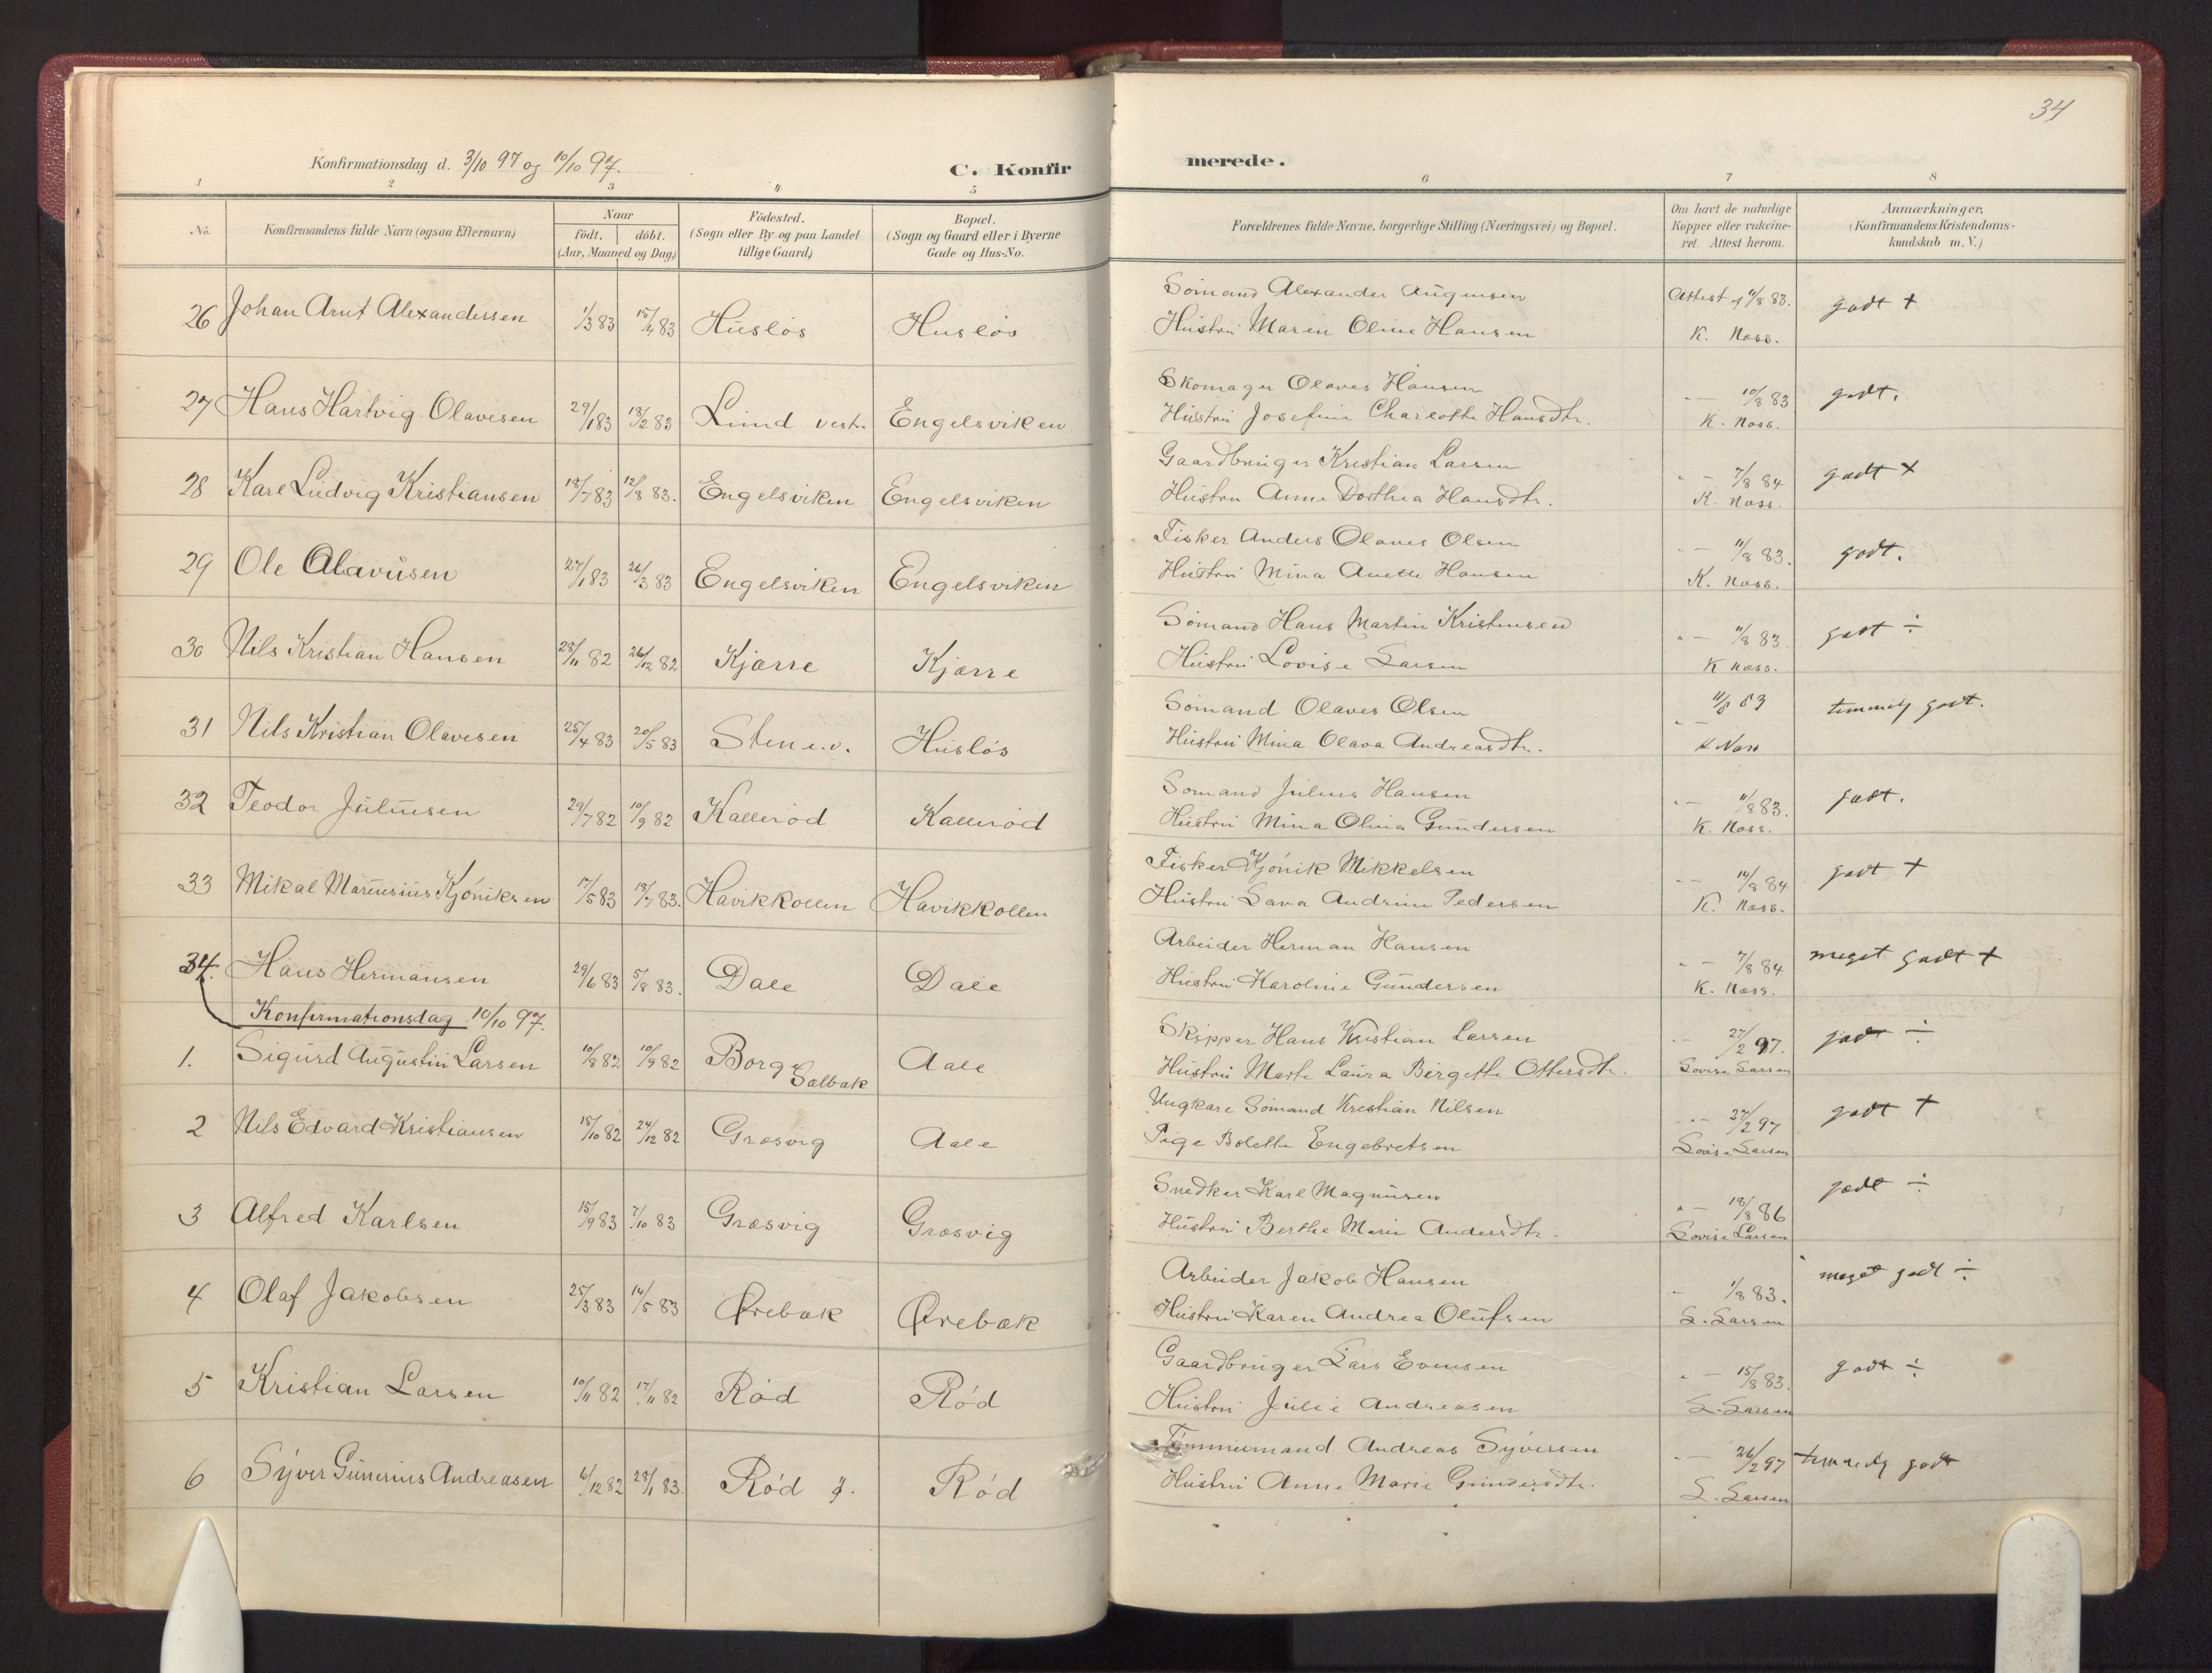 34
Konfirmationsdag d. 3/10 97 og 10/10 97.
C. Konfir merede.
1 2 3 4 5 6 7 8
No.
Konfirmandens fulde Navn (ogsaa Efternavn)
Naar
födt. döbt.
(Aar, Maaned og Dag.)
Födested.
(Sogn eller By og paa Landet
tillige Gaard)
Bopæl.
(Sogn og Gaard eller i Byerne
Gade og Hus-No.
Forældrenes fulde Navne, borgerlige Stilling (Næringsvei) og Bopæl.
Om havt de naturlige
Kopper eller vakcine-
ret Attest herom.
Anmærkninger,
(Konfirmandens Kristendoms-
kundskab m. V.)
26 Johan Arnt Alexandersen 1/3 83 15/4 83 Huslös Huslös
Sömand Alexander Augensen
Hustru Maren Oline Hansen
Attest 11/8 83.
K. Næss.
godt +
27 Hans Hartvig Olavesen 29/1 83 18/2 83 Lund vestr. Engelsviken
Skomager Olaves Hansen
Hustru Josefine Charlotte Hansdtr.
" — 10/8 83
K. Næss.
godt.
28 Karl Ludvig Kristiansen 18/7 83 12/8 83. Engelsviken Engelsviken
Gaardbruger Kristian Larsen
Hustru Anne Dorthea Hansdtr.
" — 7/8 84
K. Næss.
godt +
29 Ole Olavusen 27/1 83 26/3 83 Engelsviken Engelsviken
Fisker Anders Olaves Olsen
Hustru Mina Anette Hansen
" — 11/8 83.
K. Næss.
godt.
30 Nils Kristian Hansen 28/11 82 26/12 82 Kjærre Kjærre
Sömand Hans Martin Kristensen
Hustru Lovise Larsen
" — 11/8 83
K Næss.
godt ÷
31 Nils Kristian Olavesen 25/4 83 20/5 83 Sten e.v. Huslös
Sömand Olaves Olsen
Hustru Mina Olava Andreasdtr.
" — 11/8 83
K Næss
temmelig godt.
32 Teodor Juliusen 29/7 82 10/9 82 Kalleröd Kalleröd
Sömand Julius Hansen
Hustru Mina Olina Gundersen
" — 11/8 83.
K. Næss.
godt.
33 Mikal Marensius Kjöniksen 17/5 83 13/7 83. Havikkollen Havikkollen
Fisker Kjönik Mikkelsen
Hustru Lava Andrine Pedersen
" — 14/8 84
K. Næss.
godt +
34. Hans Hermansen 29/6 83 5/8 83. Dale Dale
Arbeider Herman Hansen
Hustru Karoline Gundersen
" — 7/8 84
K. Næss.
meget godt +
Konfirmationsdag 10/10 97.
1. Sigurd Augustin Larsen 10/8 82 10/9 82 Borge Sælbak Aale
Skipper Hans Kristian Larsen
Hustru Marte Laura Birgette Ottersdtr.
" — 27/2 97.
Lovise Larsen
godt ÷
2 Nils Edvard Kristiansen 15/10 82 24/12 82 Græsvig Aale
Ungkarl Sömand Kristian Nilsen
Pige Bolette Engebretsen
" — 27/2 97
Lovise Larsen
godt +
3 Alfred Karlsen 15/9 83 7/10 83 Græsvig Græsvig
Snedker Karl Magnusen
Hustru Berthe Marie Andersdtr.
" — 18/8 86
Lovise Larsen
godt ÷
4 Olaf Jakobsen 25/3 83 14/5 83 Ørebæk Ørebæk
Arbeider Jakob Hansen
Hustru Karen Andrea Olufsen
— 1/8 83.
L. Larsen
meget godt ÷
5 Kristian Larsen 10/11 82 17/11 82 Röd Röd
Gaardbruger Lars Evensen
Hustru Julie Andreasen
" — 15/8 83.
L. Larsen
godt ÷
6 Syver Gunerius Andreasen 6/12 82 28/1 83. Röd y. Röd
Tömmermand Andreas Syversen
Hustru Anne Marie Gundersdtr.
" — 26/2 97
L. Larsen
temmelig godt